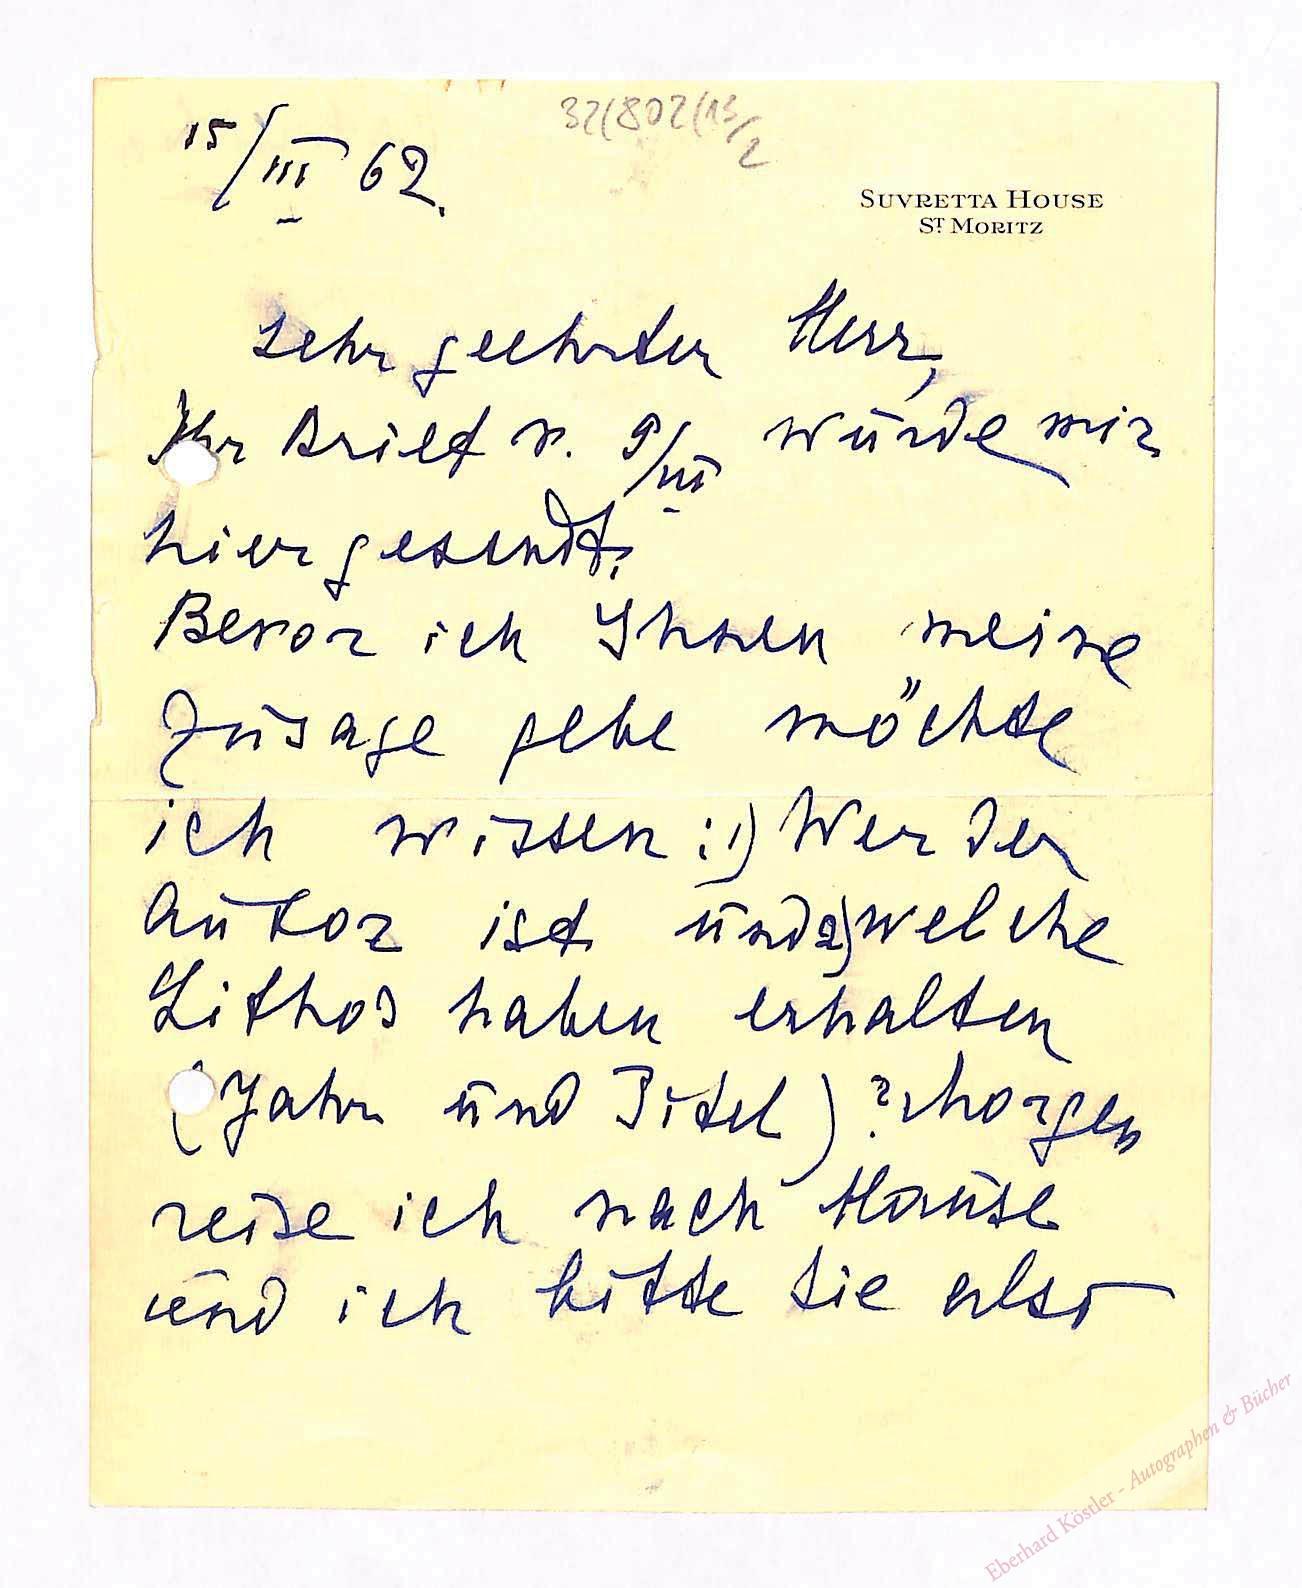 32/802/13/2
15/III 62.
SUVRETTA HOUSE
ST MORITZ
sehr geehrter Herr,
Ihr Brief v. 9/III wurde mir
hiergesendt.
Bevor ich Ihnen meine
Zusage gebe möchte
ich wissen: 1) Wer der
Autor ist und 2) welche
Lithos haben erhalten
(Jahr und Titel)? Morgen
reise ich nach Hause
und ich bitte Sie also
Eberhard Köstler - Autographen & Bücher